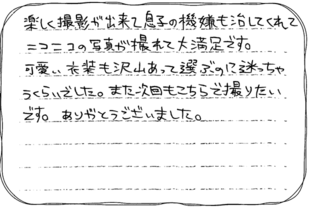 楽しく撮影が出来て息子の機嫌も治してくれて
ニコニコの写真が撮れて大満足です。
可愛い衣装も沢山あって選ぶのに迷っちゃ
うくらいでした。また次回もこちらで撮りたい
です。ありがとうございました。